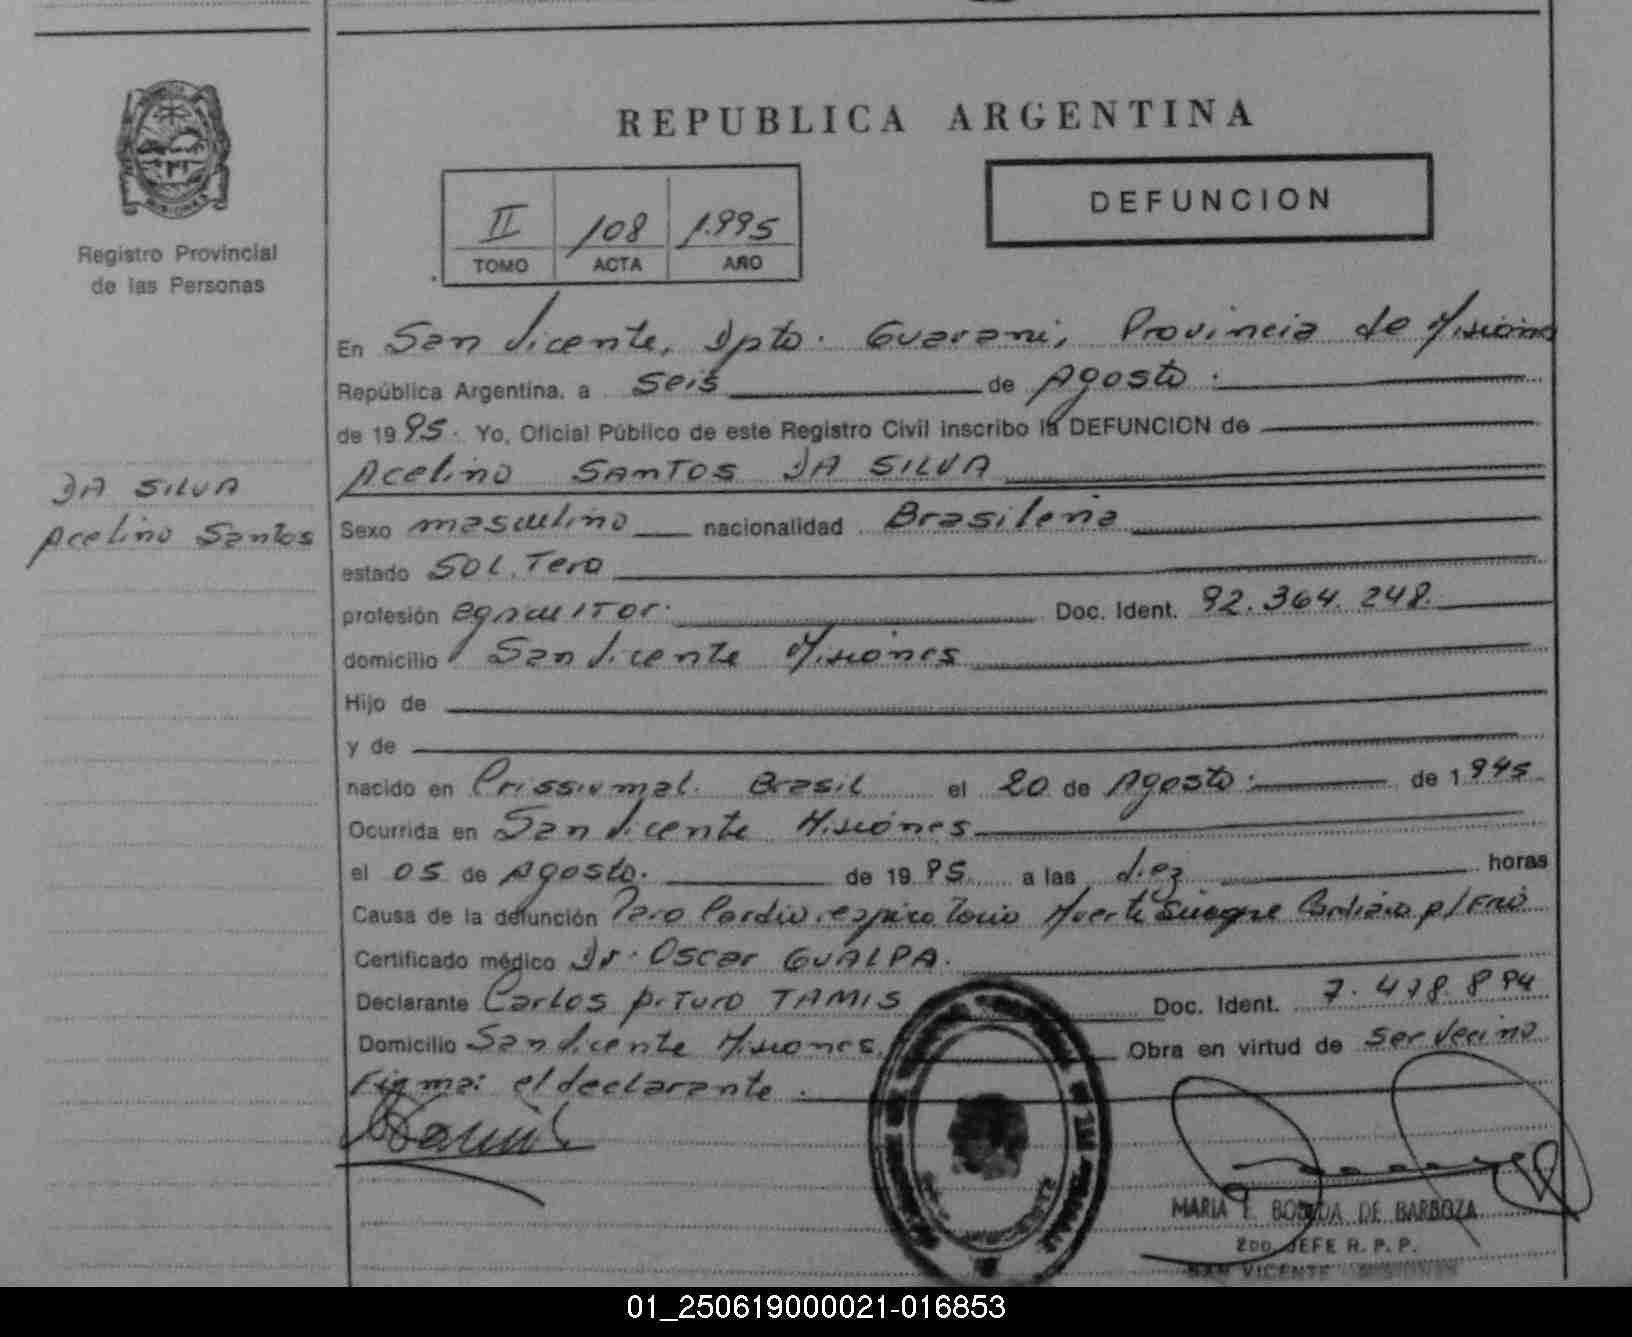 REPUBLICA ARGENTINA
DEFUNCION
II 108 1.995
TOMO ACTA AÑO
Registro Provincial
de las Personas
DA SILVA
Acelino Santos
En San Vicente, Dpto. Guarani, Provincia de Misiones
República Argentina, a seis de Agosto.
de 1995. Yo, Oficial Público de este Registro Civil inscribo la DEFUNCION de
Acelino SANTOS DA SILVA
Sexo masculino nacionalidad Brasileña
estado SOLTero
profesión agricultor. Doc. Ident. 92.364.248.
domicilio San Vicente Misiones
Hijo de
y de
nacido en Crissiumal. Brasil el 20 de Agosto. de 1945
Ocurrida en San Vicente Misiones
el 05 de Agosto. de 1995 a las diez horas
Causa de la defunción Paro Cardio respiratorio Muerte Cardiaco p/Frio
Certificado médico Dr. Oscar GUALPA.
Declarante Carlos ArTuro TAMIS Doc. Ident. 7.478.894
Domicilio San Vicente Misiones. Obra en virtud de ser vecino
Firma: el declarante.
MARIA E. BOBADA DE BARBOZA
2DO. JEFE R. P. P.
SAN VICENTE - MISIONES
01_250619000021-016853